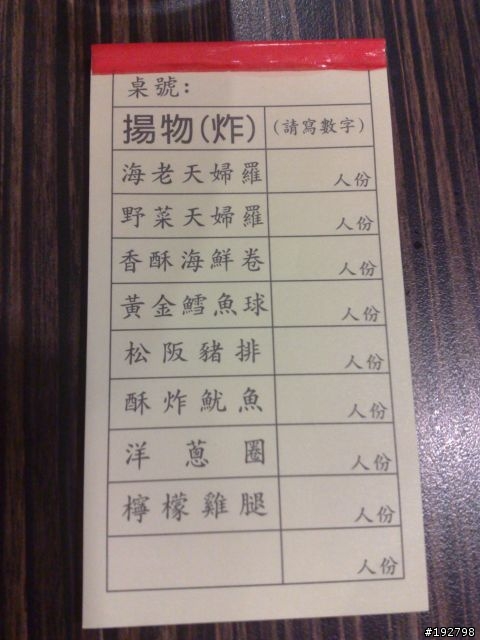 桌號:
揚物(炸) (請寫數字)
海老天婦羅 人份
野菜天婦羅 人份
香酥海鮮卷 人份
黃金鱈魚球 人份
松阪豬排 人份
酥炸魷魚 人份
洋蔥圈 人份
檸檬雞腿 人份
人份
#192798